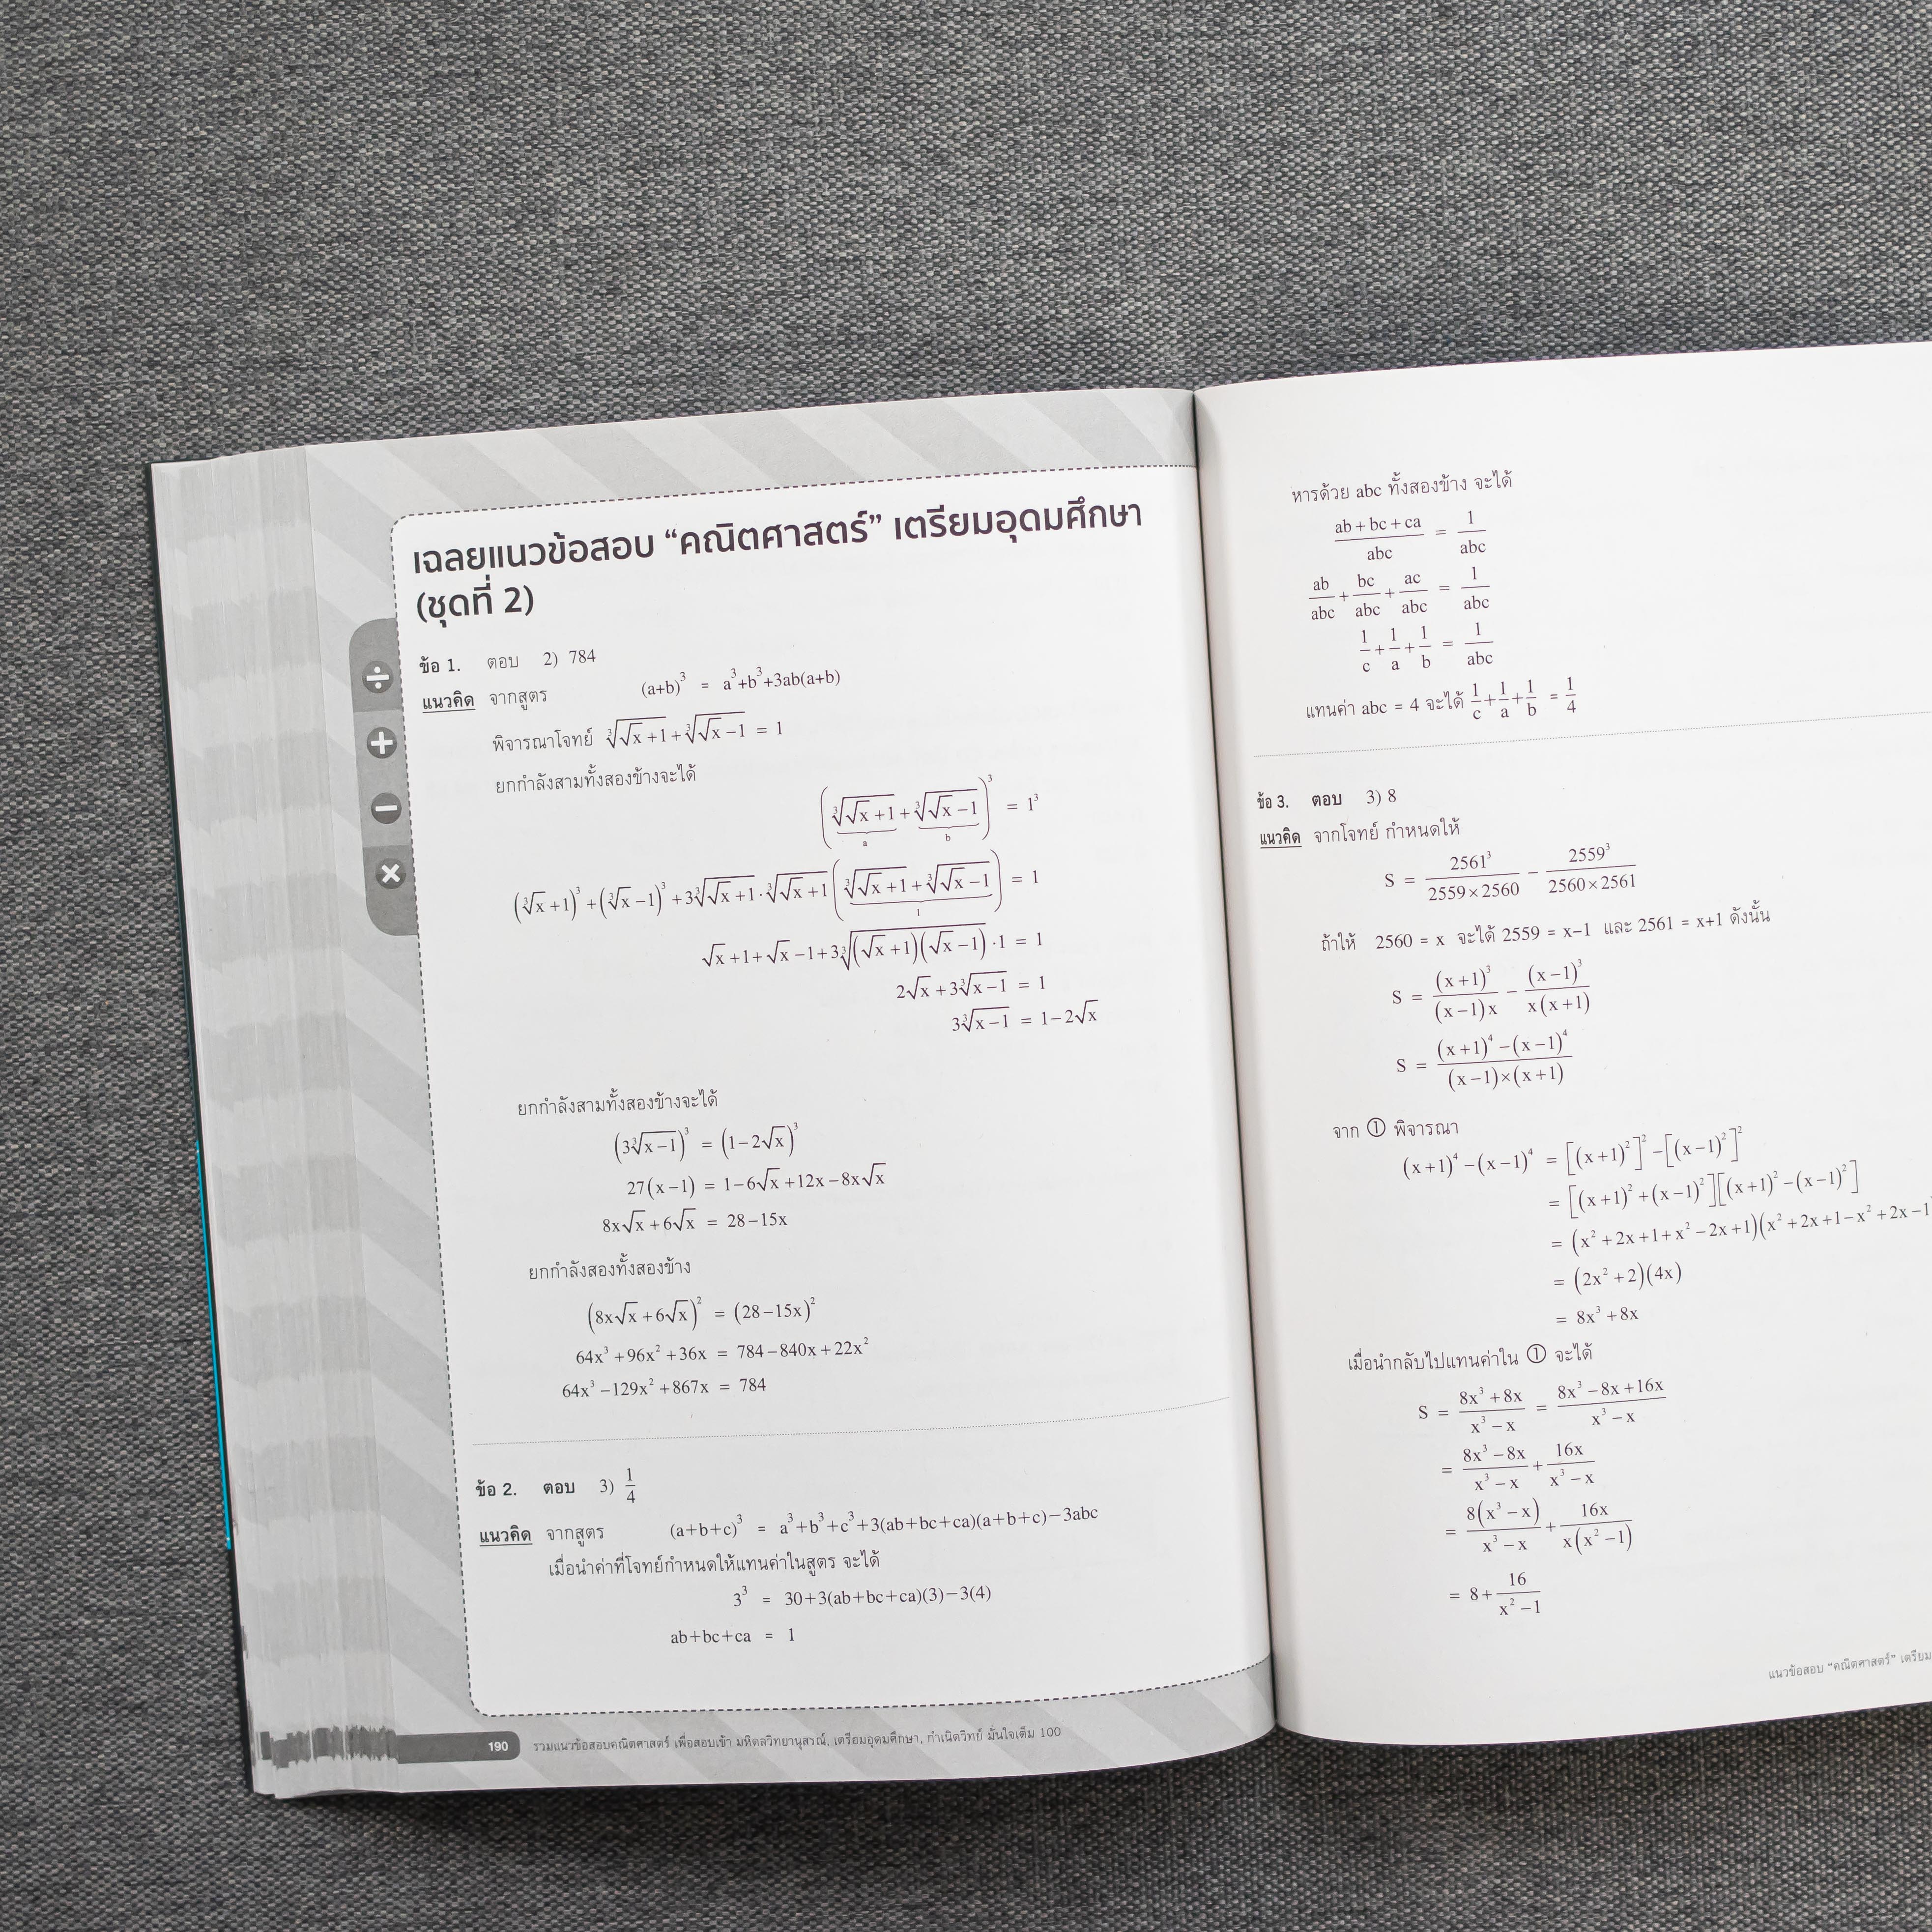 เฉลยแนวข้อสอบ “คณิตศาสตร์” เตรียมอุดมศึกษา
(ชุดที่ 2)
ข้อ 1. ตอบ 2) 784
แนวคิด จากสูตร (a+b)³ = a³+b³+3ab(a+b)
พิจารณาโจทย์ ∛(√x+1)+∛(√x−1) = 1
ยกกำลังสามทั้งสองข้างจะได้
(∛(√x+1)+∛(√x−1))³ = 1³
a b
(∛x+1)³+(∛x−1)³+3∛(√x+1)·∛(√x+1)(∛(√x+1)+∛(√x−1)) = 1
1
√x+1+√x−1+3∛((√x+1)(√x−1))·1 = 1
2√x+3∛(x−1) = 1
3∛(x−1) = 1−2√x
ยกกำลังสามทั้งสองข้างจะได้
(3∛(x−1))³ = (1−2√x)³
27(x−1) = 1−6√x+12x−8x√x
8x√x+6√x = 28−15x
ยกกำลังสองทั้งสองข้าง
(8x√x+6√x)² = (28−15x)²
64x³+96x²+36x = 784−840x+22x²
64x³−129x²+867x = 784
ข้อ 2. ตอบ 3) 1/4
แนวคิด จากสูตร (a+b+c)³ = a³+b³+c³+3(ab+bc+ca)(a+b+c)−3abc
เมื่อนำค่าที่โจทย์กำหนดให้แทนค่าในสูตร จะได้
3³ = 30+3(ab+bc+ca)(3)−3(4)
ab+bc+ca = 1
190 รวมแนวข้อสอบคณิตศาสตร์ เพื่อสอบเข้า มหิดลวิทยานุสรณ์, เตรียมอุดมศึกษา, กำเนิดวิทย์ มั่นใจเต็ม 100
หารด้วย abc ทั้งสองข้าง จะได้
(ab+bc+ca)/abc = 1/abc
ab/abc+bc/abc+ac/abc = 1/abc
1/c+1/a+1/b = 1/abc
แทนค่า abc = 4 จะได้ 1/c+1/a+1/b = 1/4
ข้อ 3. ตอบ 3) 8
แนวคิด จากโจทย์ กำหนดให้
S = 2561³/(2559×2560) − 2559³/(2560×2561)
ถ้าให้ 2560 = x จะได้ 2559 = x−1 และ 2561 = x+1 ดังนั้น
S = (x+1)³/((x−1)x) − (x−1)³/(x(x+1))
S = ((x+1)⁴−(x−1)⁴)/((x−1)×(x+1))
จาก ① พิจารณา
(x+1)⁴−(x−1)⁴ = [(x+1)²]²−[(x−1)²]²
= [(x+1)²+(x−1)²][(x+1)²−(x−1)²]
= (x²+2x+1+x²−2x+1)(x²+2x+1−x²+2x−1
= (2x²+2)(4x)
= 8x³+8x
เมื่อนำกลับไปแทนค่าใน ① จะได้
S = (8x³+8x)/(x³−x) = (8x³−8x+16x)/(x³−x)
= (8x³−8x)/(x³−x)+16x/(x³−x)
= 8(x³−x)/(x³−x)+16x/(x(x²−1))
= 8+16/(x²−1)
แนวข้อสอบ “คณิตศาสตร์” เตรียม